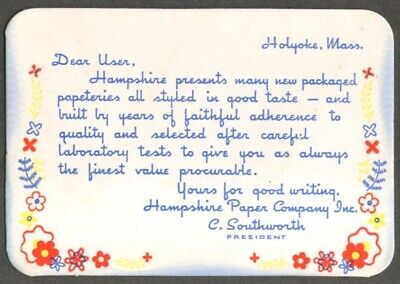 Holyoke, Mass.
Dear User,
Hampshire presents many new packaged
papeteries all styled in good taste — and
built by years of faithful adherence to
quality and selected after careful
laboratory tests to give you as always
the finest value procurable.
Yours for good writing,
Hampshire Paper Company Inc.
C. Southworth
PRESIDENT